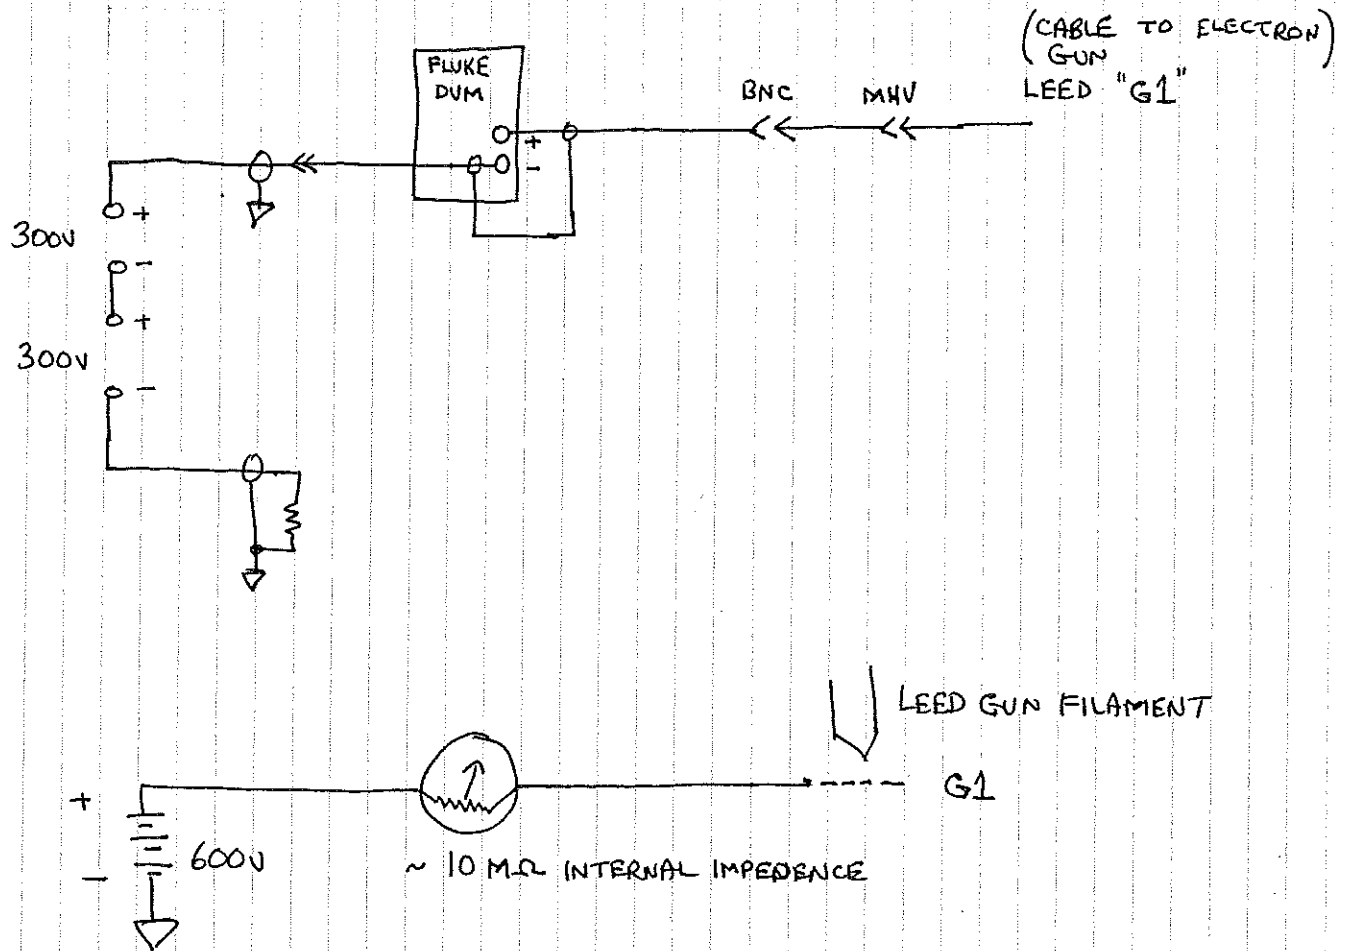 (CABLE TO ELECTRON)
(GUN
LEED "G1"
FLUKE
DVM
BNC
MHV
+
-
+
300V
-
+
300V
-
LEED GUN FILAMENT
G1
+
600V
-
~ 10 MΩ INTERNAL IMPEDENCE